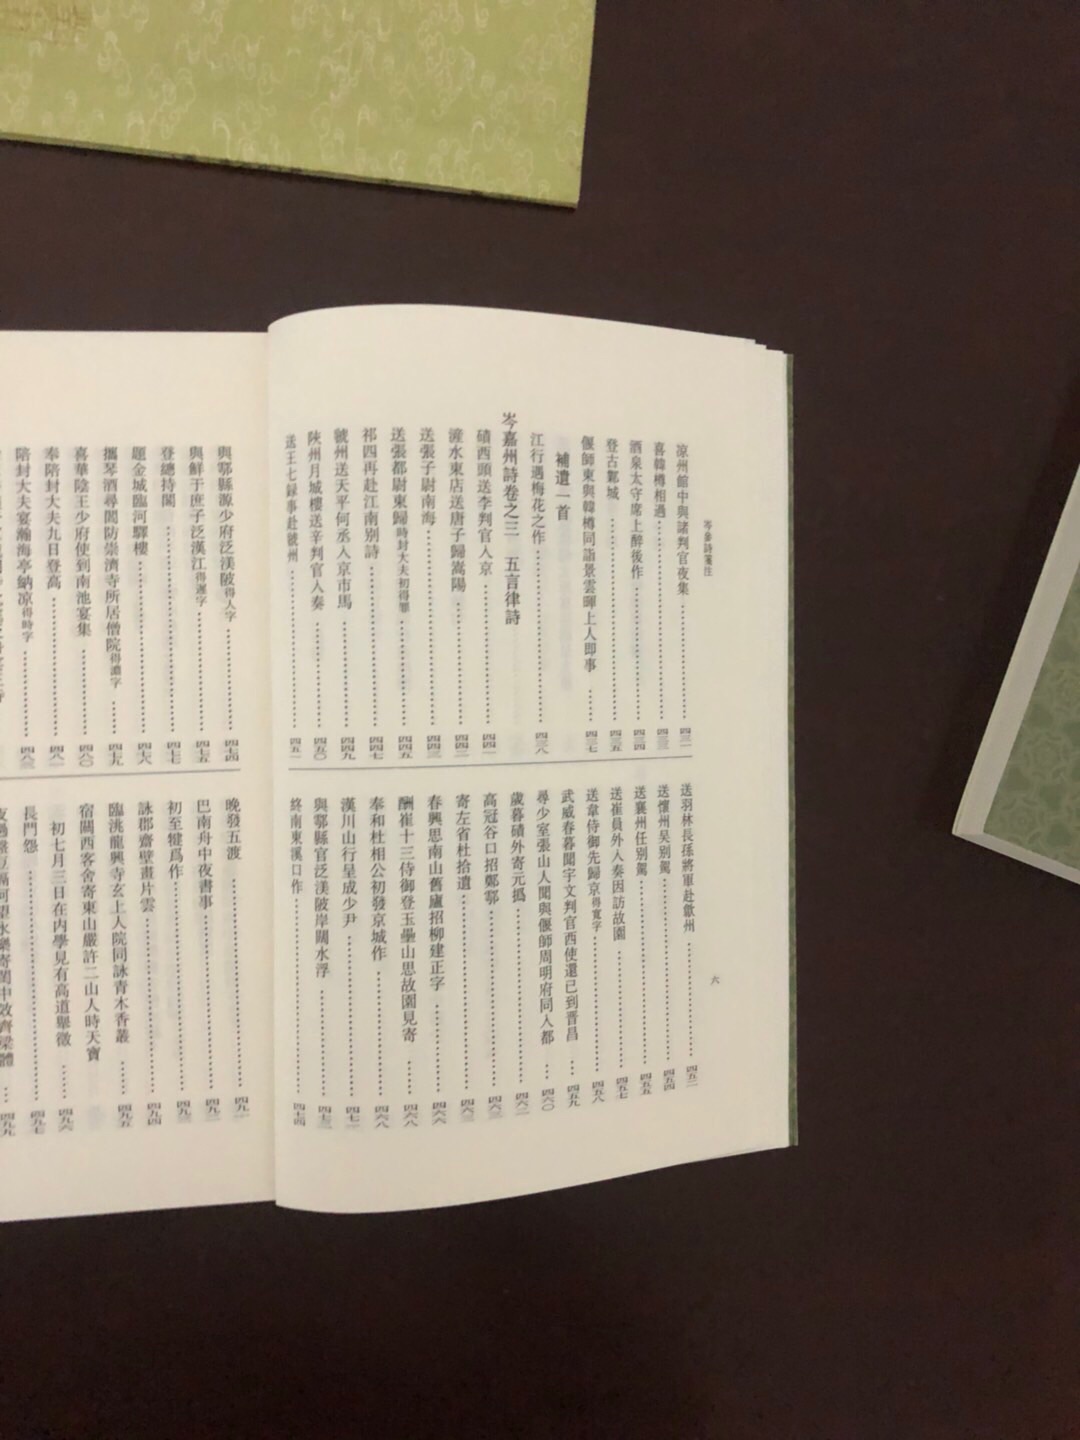 岑參詩箋注
六
涼州館中與諸判官夜集……四三一
喜韓樽相遇……四三三
酒泉太守席上醉後作……四三四
登古鄴城……四三五
偃師東與韓樽同詣景雲暉上人即事……四三七
補遺一首
江行遇梅花之作……四三八
岑嘉州詩卷之三 五言律詩
磧西頭送李判官入京……四四一
滻水東店送唐子歸嵩陽……四四二
送張子尉南海……四四三
送張都尉東歸時封大夫初得罪……四四五
祁四再赴江南別詩……四四七
虢州送天平何丞入京市馬……四四九
陝州月城樓送辛判官入奏……四五〇
送王七録事赴虢州……四五一
送羽林長孫將軍赴歙州……四五二
送懷州吴別駕……四五四
送襄州任別駕……四五五
送崔員外入奏因訪故園……四五七
送韋侍御先歸京得寬字……四五八
武威春暮聞宇文判官西使還已到晋昌……四五九
尋少室張山人聞與偃師周明府同入都……四六〇
歲暮磧外寄元撝……四六二
高冠谷口招鄭鄠……四六三
寄左省杜拾遺……四六三
春興思南山舊廬招柳建正字……四六六
酬崔十三侍御登玉壘山思故園見寄……四六八
奉和杜相公初發京城作……四六八
漢川山行呈成少尹……四七一
與鄠縣官泛渼陂岸闊水浮……四七三
終南東溪口作……四七四
與鄠縣源少府泛渼陂得人字……四七四
與鮮于庶子泛漢江得遲字……四七五
登總持閣……四七七
題金城臨河驛樓……四七八
攜琴酒尋閻防崇濟寺所居僧院得濃字……四七九
喜華陰王少府使到南池宴集……四八〇
奉陪封大夫九日登高……四八一
陪封大夫宴瀚海亭納凉得時字……四八三
晚發五渡……四九一
巴南舟中夜書事……四九二
初至犍爲作……四九三
詠郡齋壁畫片雲……四九四
臨洮龍興寺玄上人院同詠青木香叢……四九五
宿關西客舍寄東山嚴許二山人時天寶
初七月三日在内學見有高道舉徵……四九六
長門怨……四九七